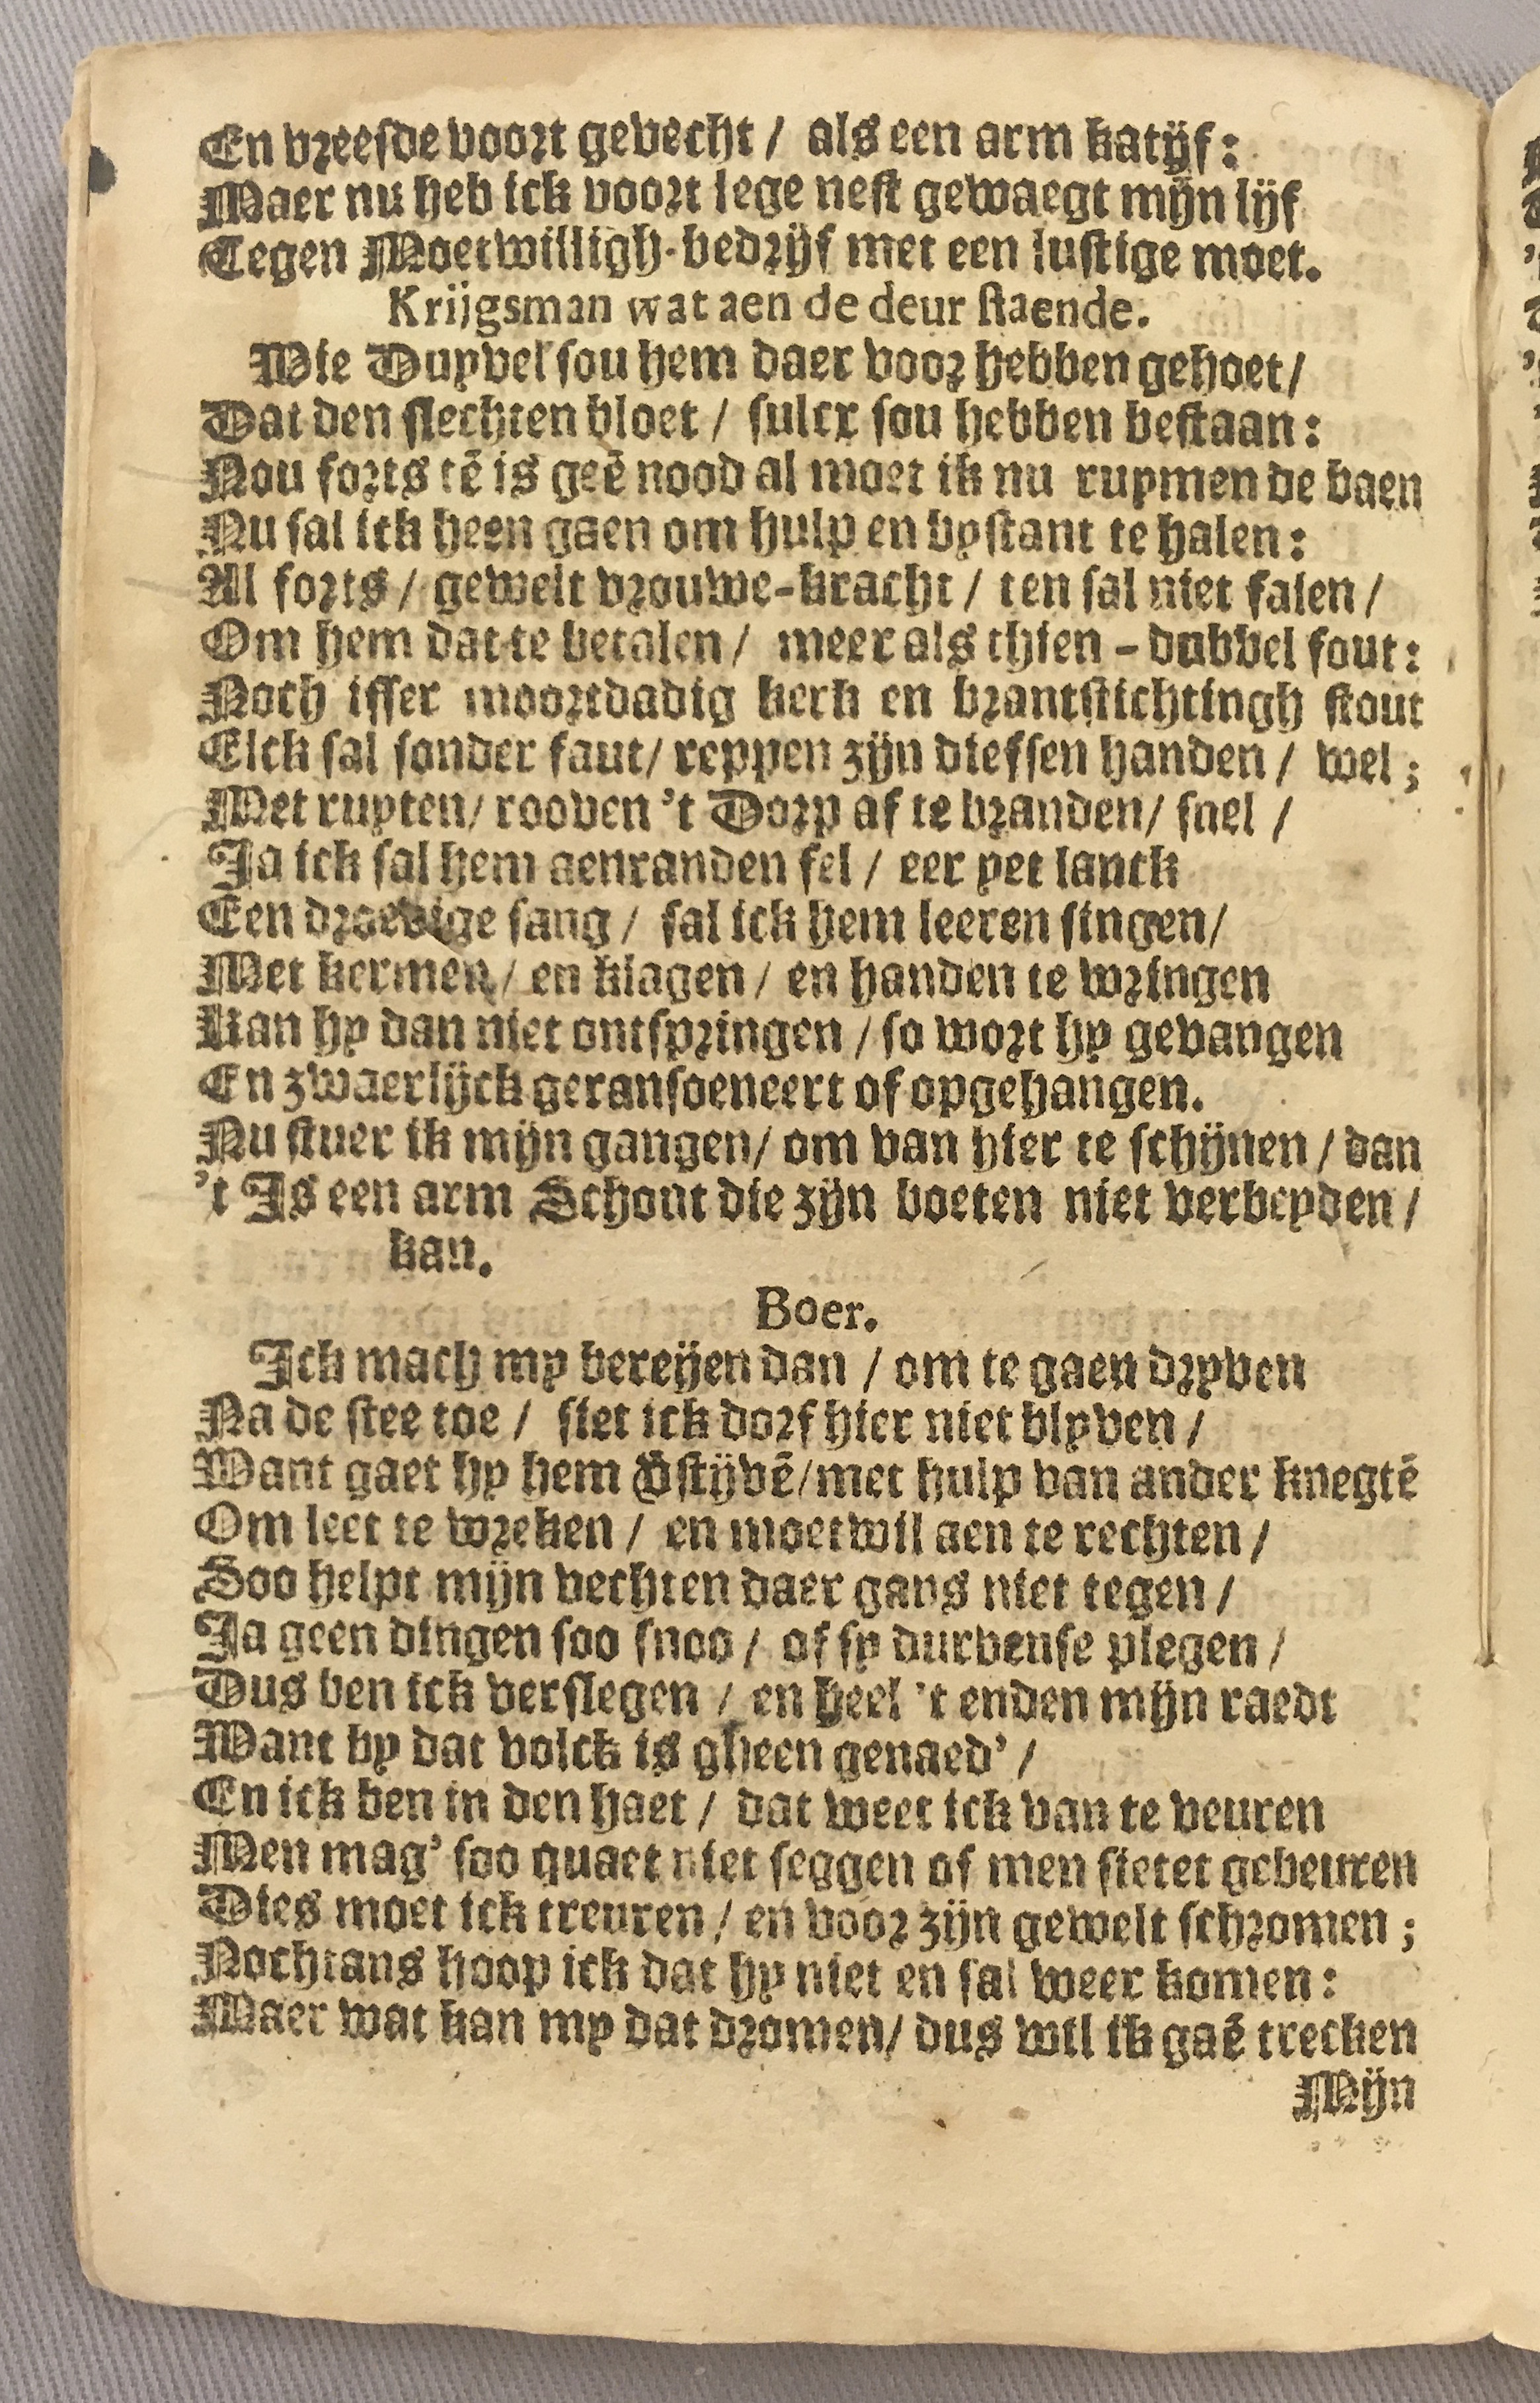 En vreesde voort gevecht / als een arm katijf:
Maer nu heb ick voort lege nest gewaegt mijn lijf
Tegen Moetwilligh-bedrijf met een lustige moet.
Krijgsman wat aen de deur staende.
Wie Duyvel sou hem daer voor hebben gehoet /
Dat den slechten bloet / sulcx sou hebben bestaan:
Nou forts tē is geē nood al moet ik nu ruymen de baen
Nu sal ick heen gaen om hulp en bystant te halen:
Al forts / gewelt vrouwe-kracht / ten sal niet falen /
Om hem dat te betalen / meer als thien-dubbel fout:
Noch isser moortdadig kerk en brantstichtingh stout
Elck sal sonder faut / reppen zijn dieffen handen / wel;
Met ruyten / rooven 't Dorp af te branden / snel /
Ja ick sal hem aenranden fel / eer yet lanck
Een droevige sang / sal ick hem leeren singen /
Met kermen / en klagen / en handen te wringen
Kan hy dan niet ontspringen / so wort hy gevangen
En zwaerlijck geransoeneert of opgehangen.
Nu stuer ik mijn gangen / om van hier te schijnen / dan
't Is een arm Schout die zijn boeten niet verbeyden /
kan.
Boer.
Ick mach my bereijen dan / om te gaen dryven
Na de stee toe / siet ick dorf hier niet blyven /
Want gaet hy hem v̄stijvē / met hulp van ander knegtē
Om leet te wreken / en moetwil aen te rechten /
Soo helpt mijn vechten daer gans niet tegen /
Ja geen dingen soo snoo / of sy durvense plegen /
Dus ben ick verslegen / en heel 't enden mijn raedt
Want by dat volck is gheen genaed' /
En ick ben in den haet / dat weet ick van te veuren
Men mag' soo quaet niet seggen of men sietet gebeuren
Dies moet ick treuren / en voor zijn gewelt schromen;
Nochtans hoop ick dat hy niet en sal weer komen:
Maer wat kan my dat dromen / dus wil ik gaē trecken
Mijn